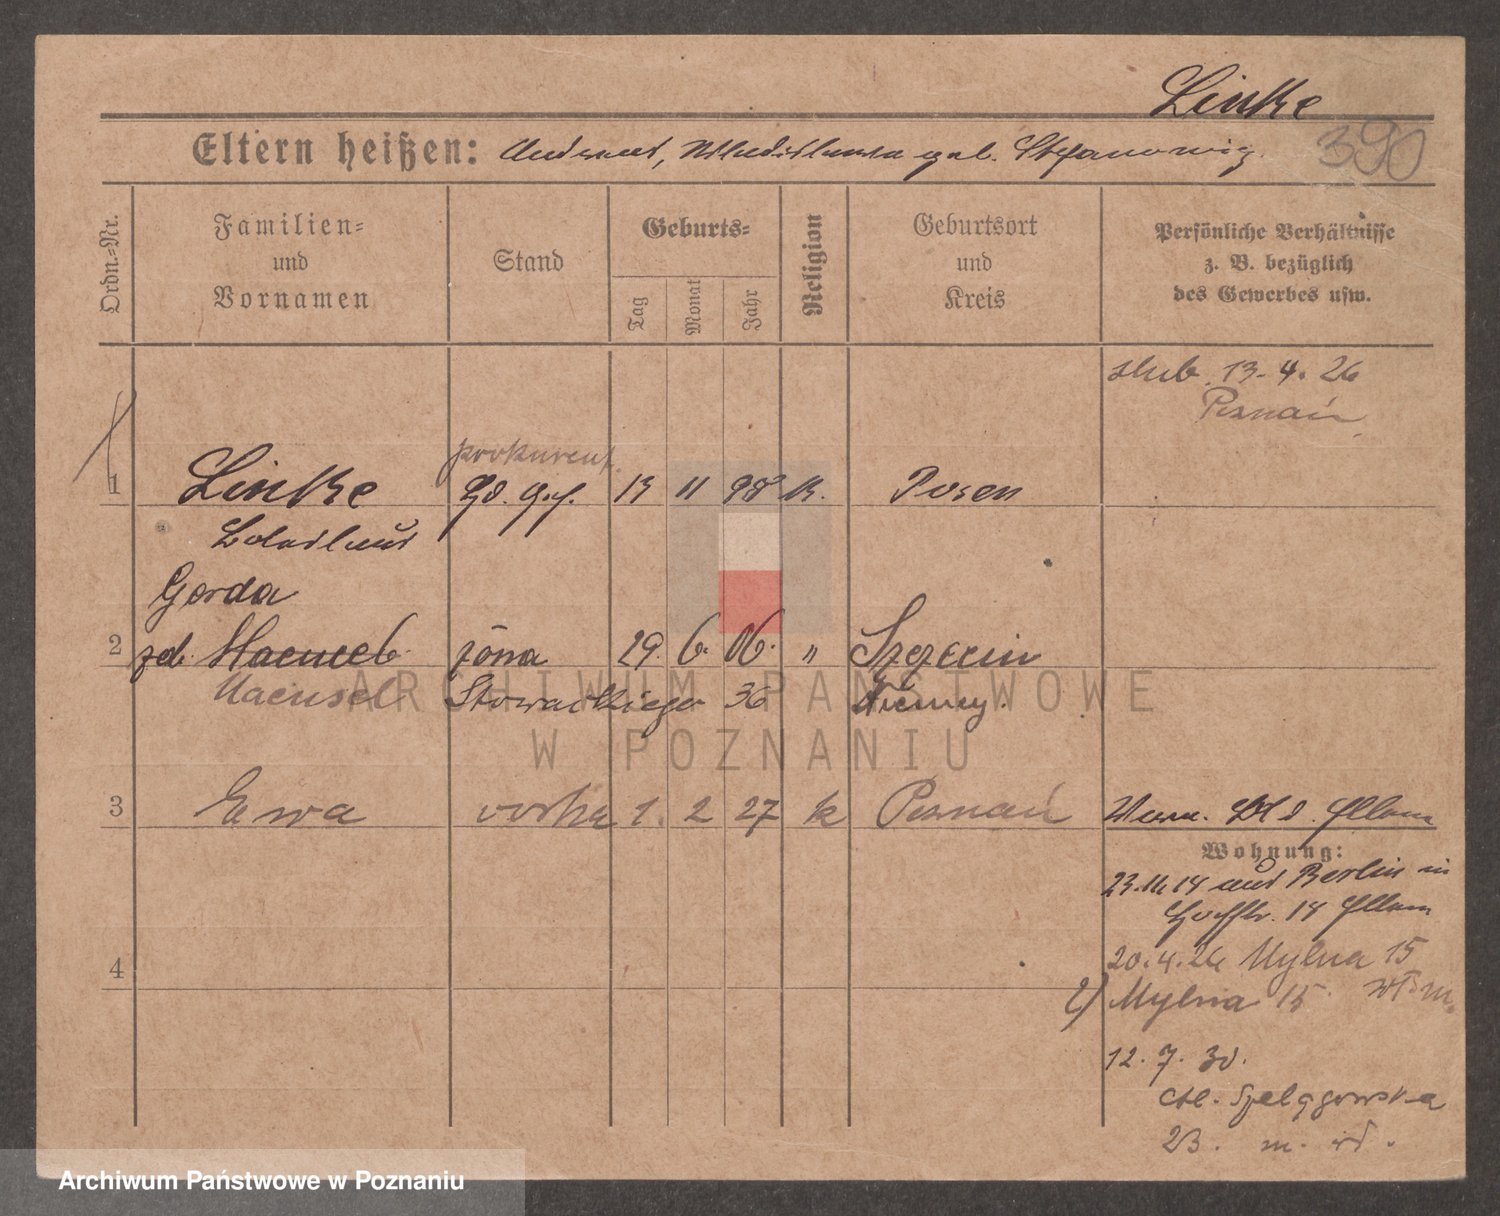 Linke
Eltern heißen: geb.
390
Ordn.-Nr.
Familien-
und
Vornamen
Stand
Geburts-
Tag
Monat
Jahr
Religion
Geburtsort
und
Kreis
Persönliche Verhältnisse
z. B. bezüglich
des Gewerbes usw.
ślub 13. 4. 26
Poznań
prokurent
1 Linke 13 11 98 k. Posen
Boleslaus
Gerda
2 zd. żona 29. 6. 06. " Szczecin
Haensel Słowackiego 36 Niemcy.
3 Ewa córka 1. 2 27 k Poznań
Wohnung:
aus Berlin in
20.4.26 Mylna 15
2) Mylna 15
4
12. 7. 30.
Szelągowska
23. m. wł.
ARCHIWUM PAŃSTWOWE
W POZNANIU
Archiwum Państwowe w Poznaniu